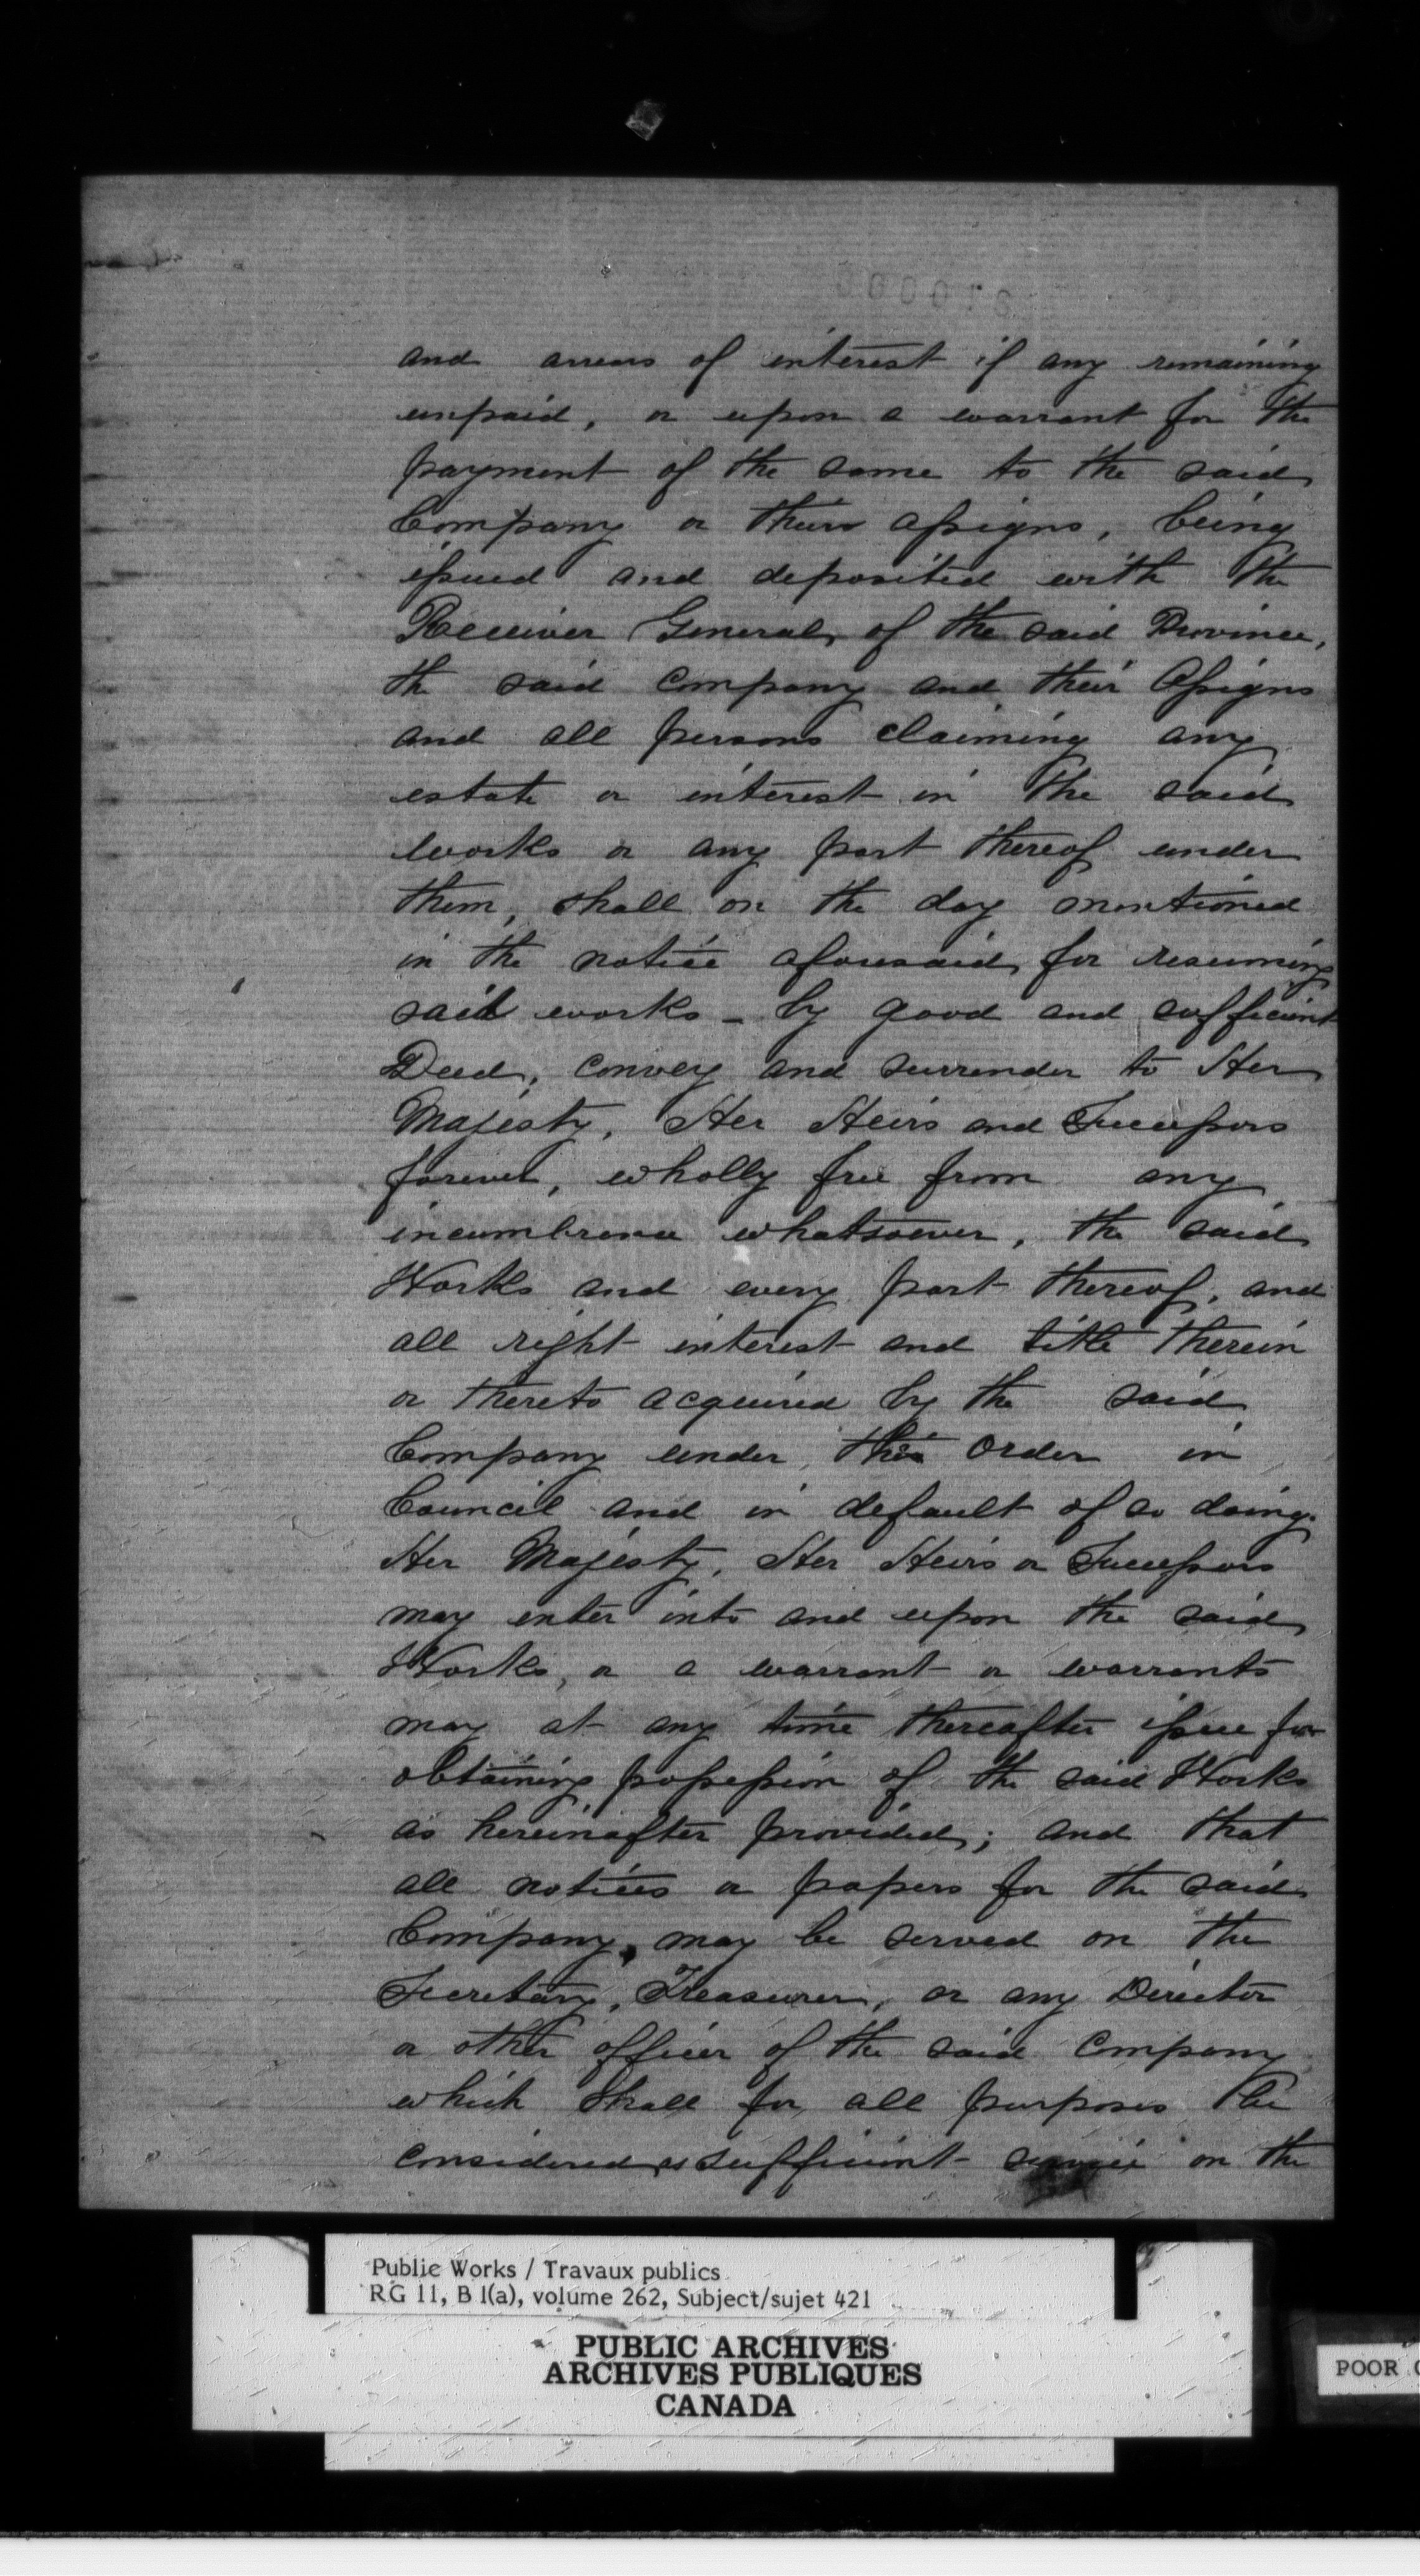 and arrears of interest if any remaining
unpaid, or upon a warrant for the
payment of the same to the said
Company or their assigns, being
issued and deposited with the
Receiver General, of the said Province,
the said Company and their Assigns
and all persons claiming any
estate or interest in the said
works or any part thereof under
them, shall on the day mentioned
in the notice aforesaid, for resuming
said works - by good and sufficient
Deed, convey and surrender to Her
Majesty, Her Heirs and Successors
forever, wholly free from any
incumbrance whatsoever, the said
Works and every part thereof, and
all right interest and title therein
or thereto acquired by the said
Company under this Order in
Council and in default of so doing.
Her Majesty, Her Heirs or Successors
may enter into and upon the said
Works, or a warrant or warrants
may at any time thereafter issue for
obtaining possession of the said Works
as hereinafter provided; and that
all notices or papers for the said
Company, may be served on the
Secretary, Treasurer, or any Director
or other officer of the said Company
which shall for all purposes be
considered as sufficient service on the
Public Works / Travaux publics
RG 11, B 1(a), volume 262, Subject/sujet 421
PUBLIC ARCHIVES
ARCHIVES PUBLIQUES
CANADA
POOR